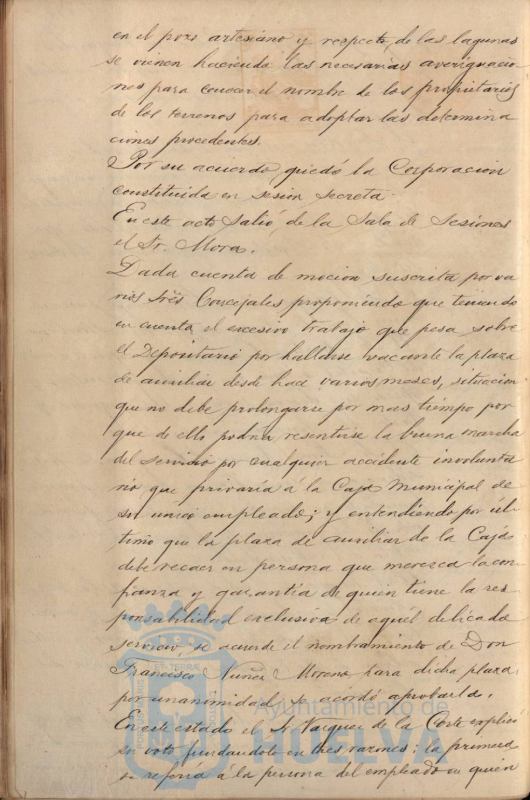 en el pozo artesiano y respecto de las lagunas
se vienen haciendo las necesarias averiguacio
nes para conocer el nombre de los propietarios
de los terrenos para adoptar las determina
ciones procedentes.
Por su acuerdo quedó la Corporacion
constituida en sesion secreta.
En este acto salió de la Sala de Sesiones
el Sr. Mora.
Dada cuenta de mocion suscrita por va
rios Sres Concejales proponiendo que teniendo
en cuenta el excesivo trabajo que pesa sobre
el Depositario por hallarse vacante la plaza
de auxiliar desde hace varios meses, situacion
que no debe prolongarse por mas tiempo por
que de ello podria resentirse la buena marcha
del servicio por cualquier accidente involunta
rio que privaría á la Caja Municipal de
su unico empleado; y entendiendo por úl
timo que la plaza de auxiliar de la Caja
debe recaer en persona que merezca la con
fianza y garantia de quien tiene la res
ponsabilidad exclusiva de aquél delicado
servicio, se acuerde el nombramiento de Don
Francisco Nuñez Moreno para dicha plaza,
por unanimidad se acordó aprobarla.
En este estado el Sr Vazquez de la Corte explicó
su voto fundandolo en tres razones: la primera
se referia á la persona del empleado en quien
Ayuntamiento de
HUELVA